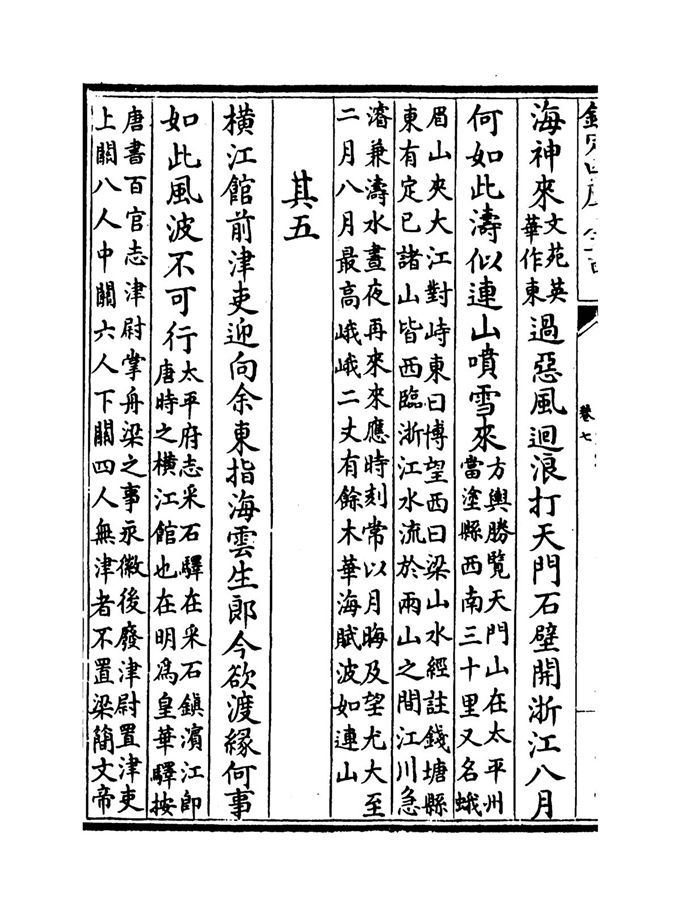 卷七
海神來文苑英
華作東過惡風迴浪打天門石壁開浙江八月
何如此濤似連山噴雪來方輿勝覽天門山在太平州
當塗縣西南三十里又名蛾
眉山夾大江對峙東曰博望西曰梁山水經註錢塘縣
東有定已諸山皆西臨浙江水流於兩山之間江川急
濬兼濤水晝夜再來來應時刻常以月晦及望尤大至
二月八月最高峨峨二丈有餘木華海賦波如連山
其五
橫江館前津吏迎向余東指海雲生郎今欲渡緣何事
如此風波不可行太平府志采石驛在采石鎮濱江即
唐時之橫江館也在明爲皇華驛按
唐書百官志津尉掌舟梁之事永徽後廢津尉置津吏
上關八人中關六人下關四人無津者不置梁簡文帝